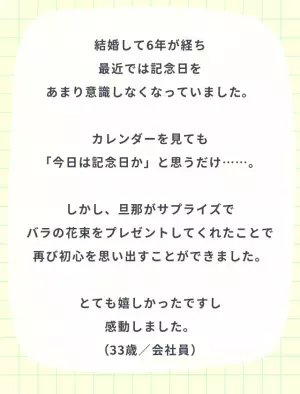 結婚して6年が経ち
最近では記念日を
あまり意識しなくなっていました。
カレンダーを見ても
「今日は記念日か」と思うだけ……。
しかし、旦那がサプライズで
バラの花束をプレゼントしてくれたことで
再び初心を思い出すことができました。
とても嬉しかったですし
感動しました。
（33歳／会社員）